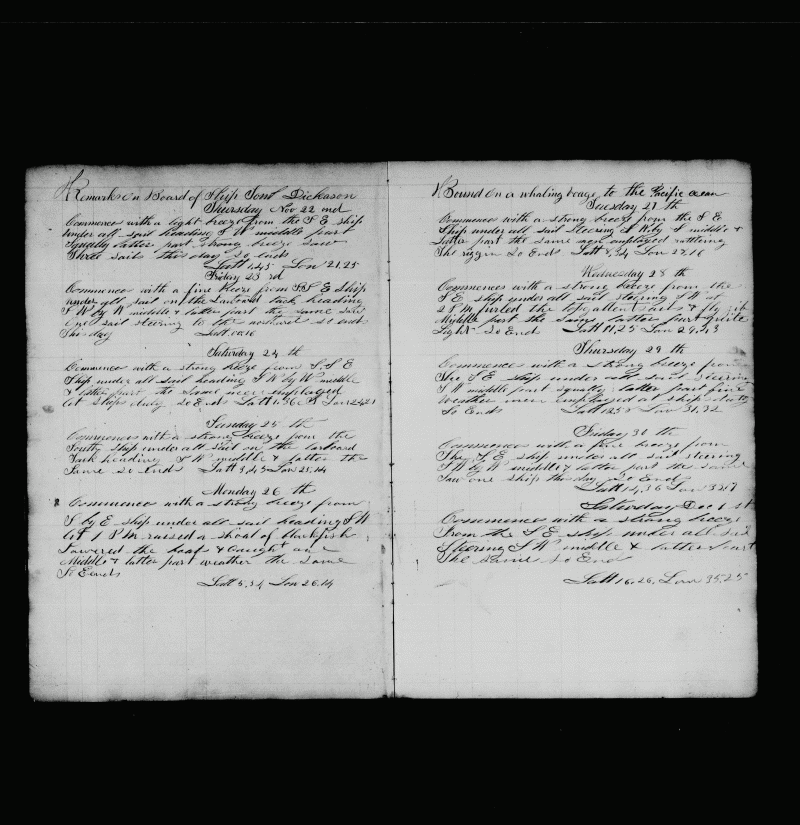 Remarks on Board of Ship Thos Dickason
Thursday Nov 22 nd
Commences with a light breeze from the S E ship
under all sail heading S W middle part
squally latter part strong breeze saw
three sails this day so ends
Latt 1,45 Lon 21,25
Friday 23 rd
Commences with a fine breeze from S S E Ship
under all sail on the Larboard tack heading
S W by W middle & latter part the same saw
one sail steering to the northward so ends
this day Latt
Saturday 24 th
Commences with a strong breeze from S. S E
Ship under all sail heading S W by W middle
& latter part the same men employed
at ships duty So Ends Latt 1,56 Lon 24,21
Sunday 25 th
Commences with a strong breeze from the
South ship under all sail on the larboard
Tack heading S W middle & latter the
Same So Ends Latt 3,45 Lon 25,14
Monday 26 th
Commences with a strong breeze from
S by E ship under all sail heading S W
At 1 P M raised a shoal of blackfish
Lowered the boats & Caught one
Middle & latter part weather the same
So Ends
Latt 5,34 Lon 26,14
Bound On a whaling voage to the Pacific ocean
Tuesday 27 th
Commences with a strong breeze from the S E
Ship under all sail steering S W by S middle &
Latter part the same men employed rattling
The riggin So Ends Latt 8,34 Lon 27,10
Wednesday 28 th
Commences with a strong breeze from the
S E. ship under all sail steering S W at
2 P M furled the topgallentsails & fly jib
Middle part the same latter part quite
Light So End Latt 11,25 Lon 29,43
Thursday 29 th
Commences with a strong breeze from
The S E ship under all sail steering
S W middle part squally latter part fine
Weather men employed at ship duty
So Ends Latt 12,58 Lon 31,32
Friday 30 th
Commences with a fine breeze from
The S E ship under all sail steering
S W by W middle & latter part the same
Saw one ship this day So Ends
Latt 14,36 Lon 33,17
Saturday Dec 1 st
Commences with a strong breeze
From the S E ship under all sail
Steering S W middle & latter part
The same So End
Latt 16,26, Lon 35,25